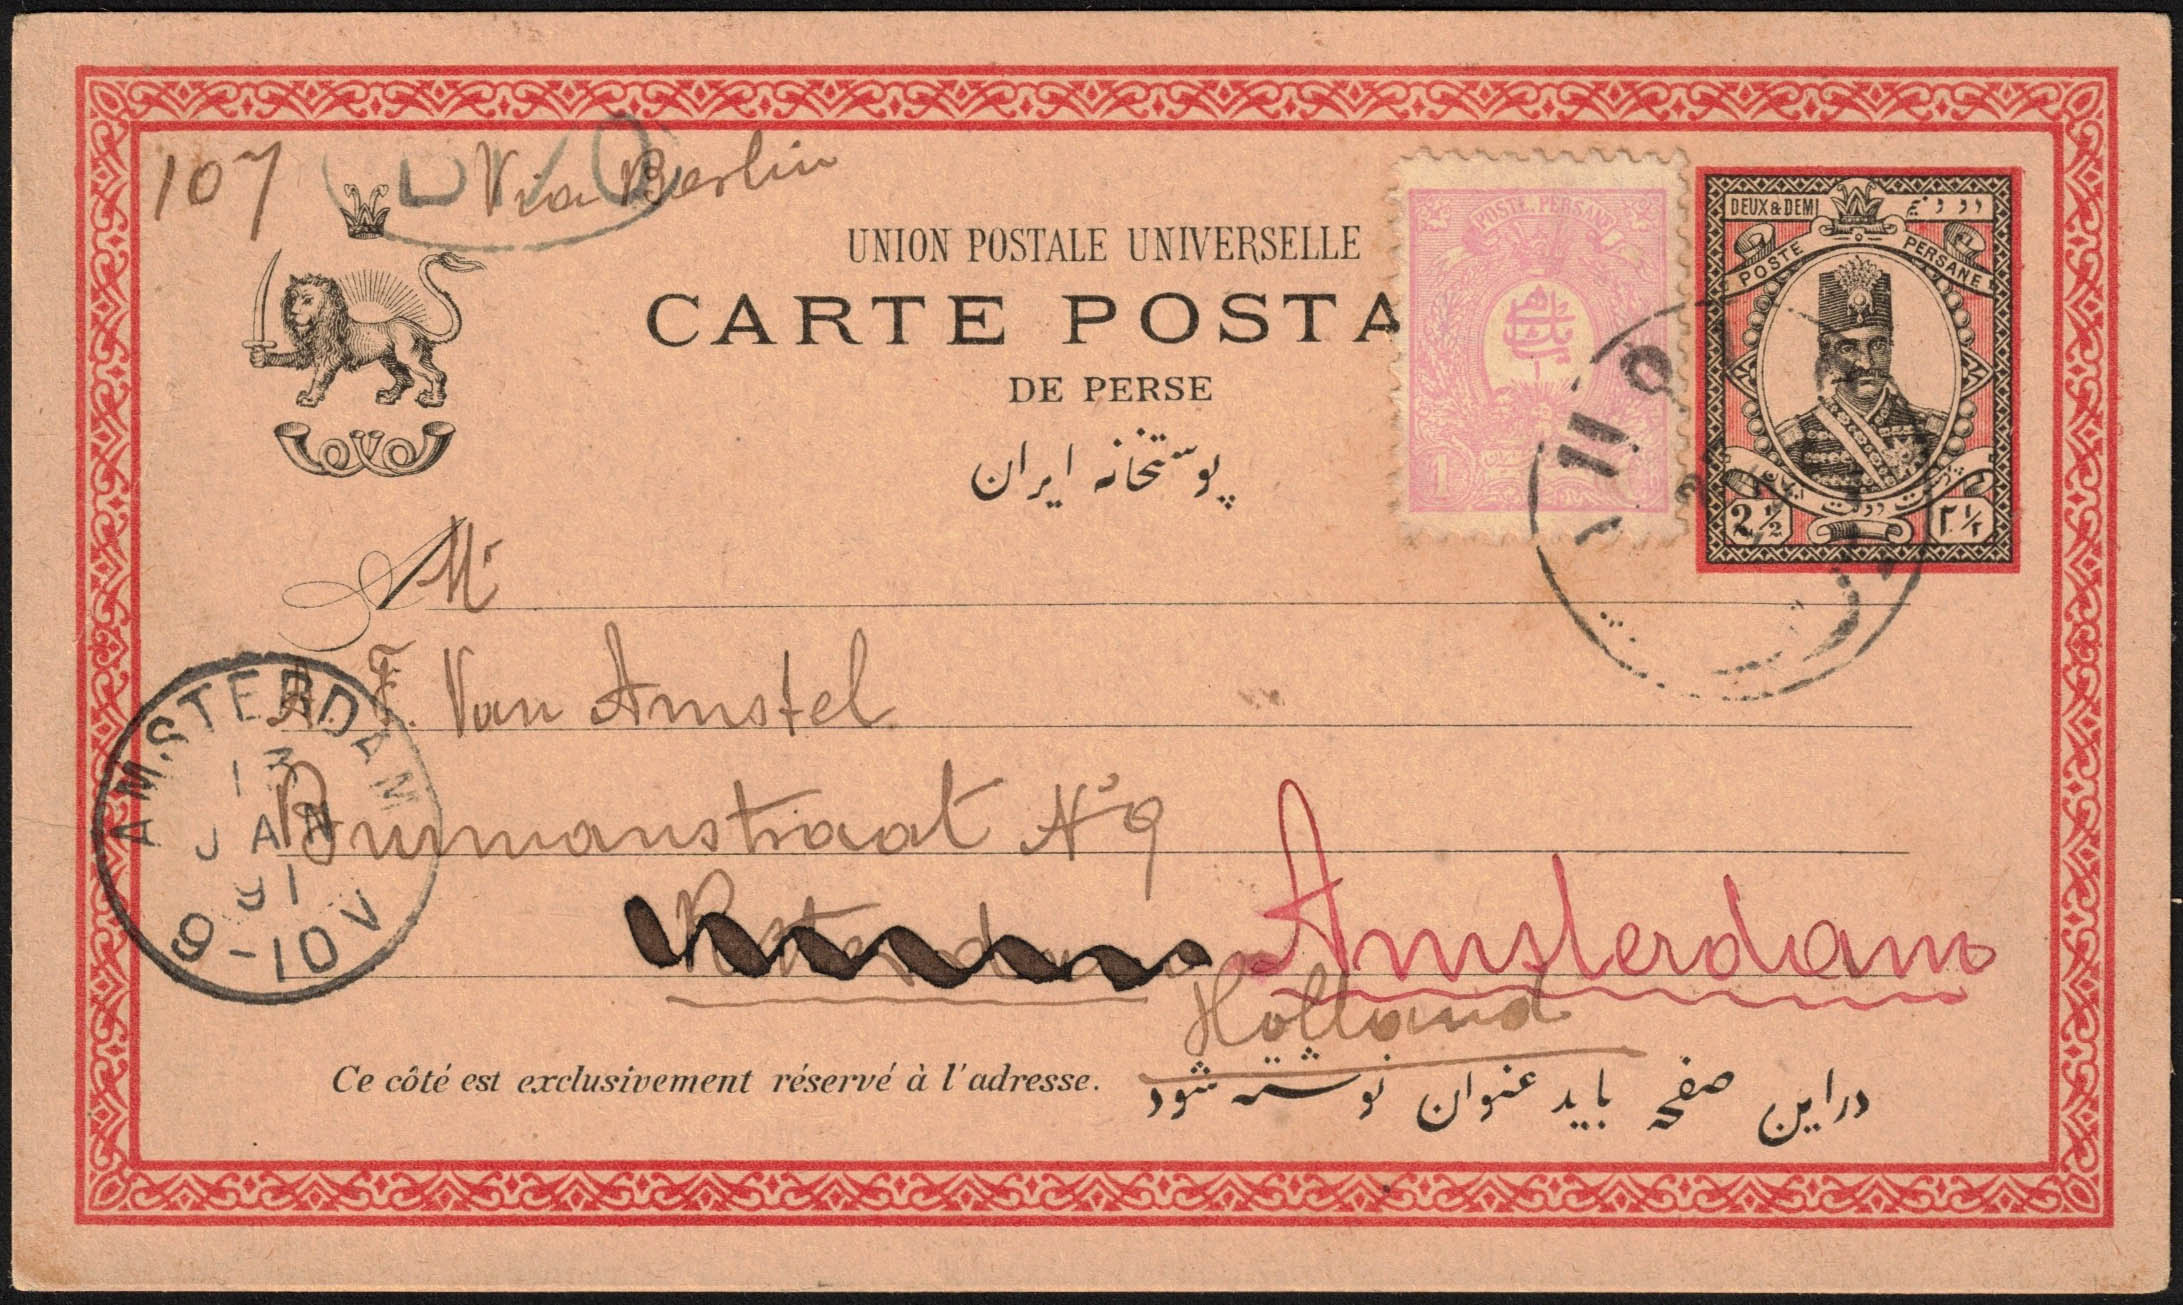 107
Via Berlin
UNION POSTALE UNIVERSELLE
CARTE POSTA
DE PERSE
پوستخانه ایران
POSTE PERSANE
1
DEUX & DEMI
POSTE PERSANE
2½ ۲½
Mr
A. F. Van Amstel
Burmanstraat No 9
Rotterdam Amsterdam
Holland
AMSTERDAM
13
JAN
91
9-10V
Ce côté est exclusivement réservé à l'adresse.
دراین صفحه باید عنوان نوشته شود